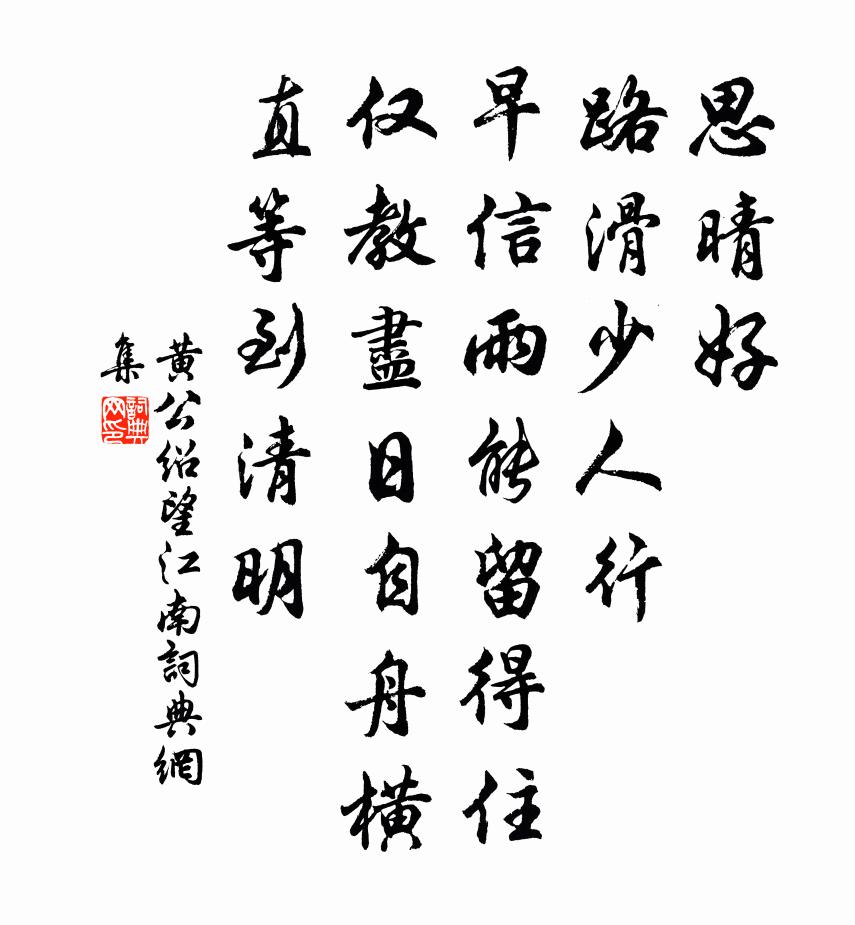 思晴好
路滑少人行
早信雨能留得住
仅教盡日自舟橫
直等到清明
黄公紹望江南詞典網
集
詞典網印